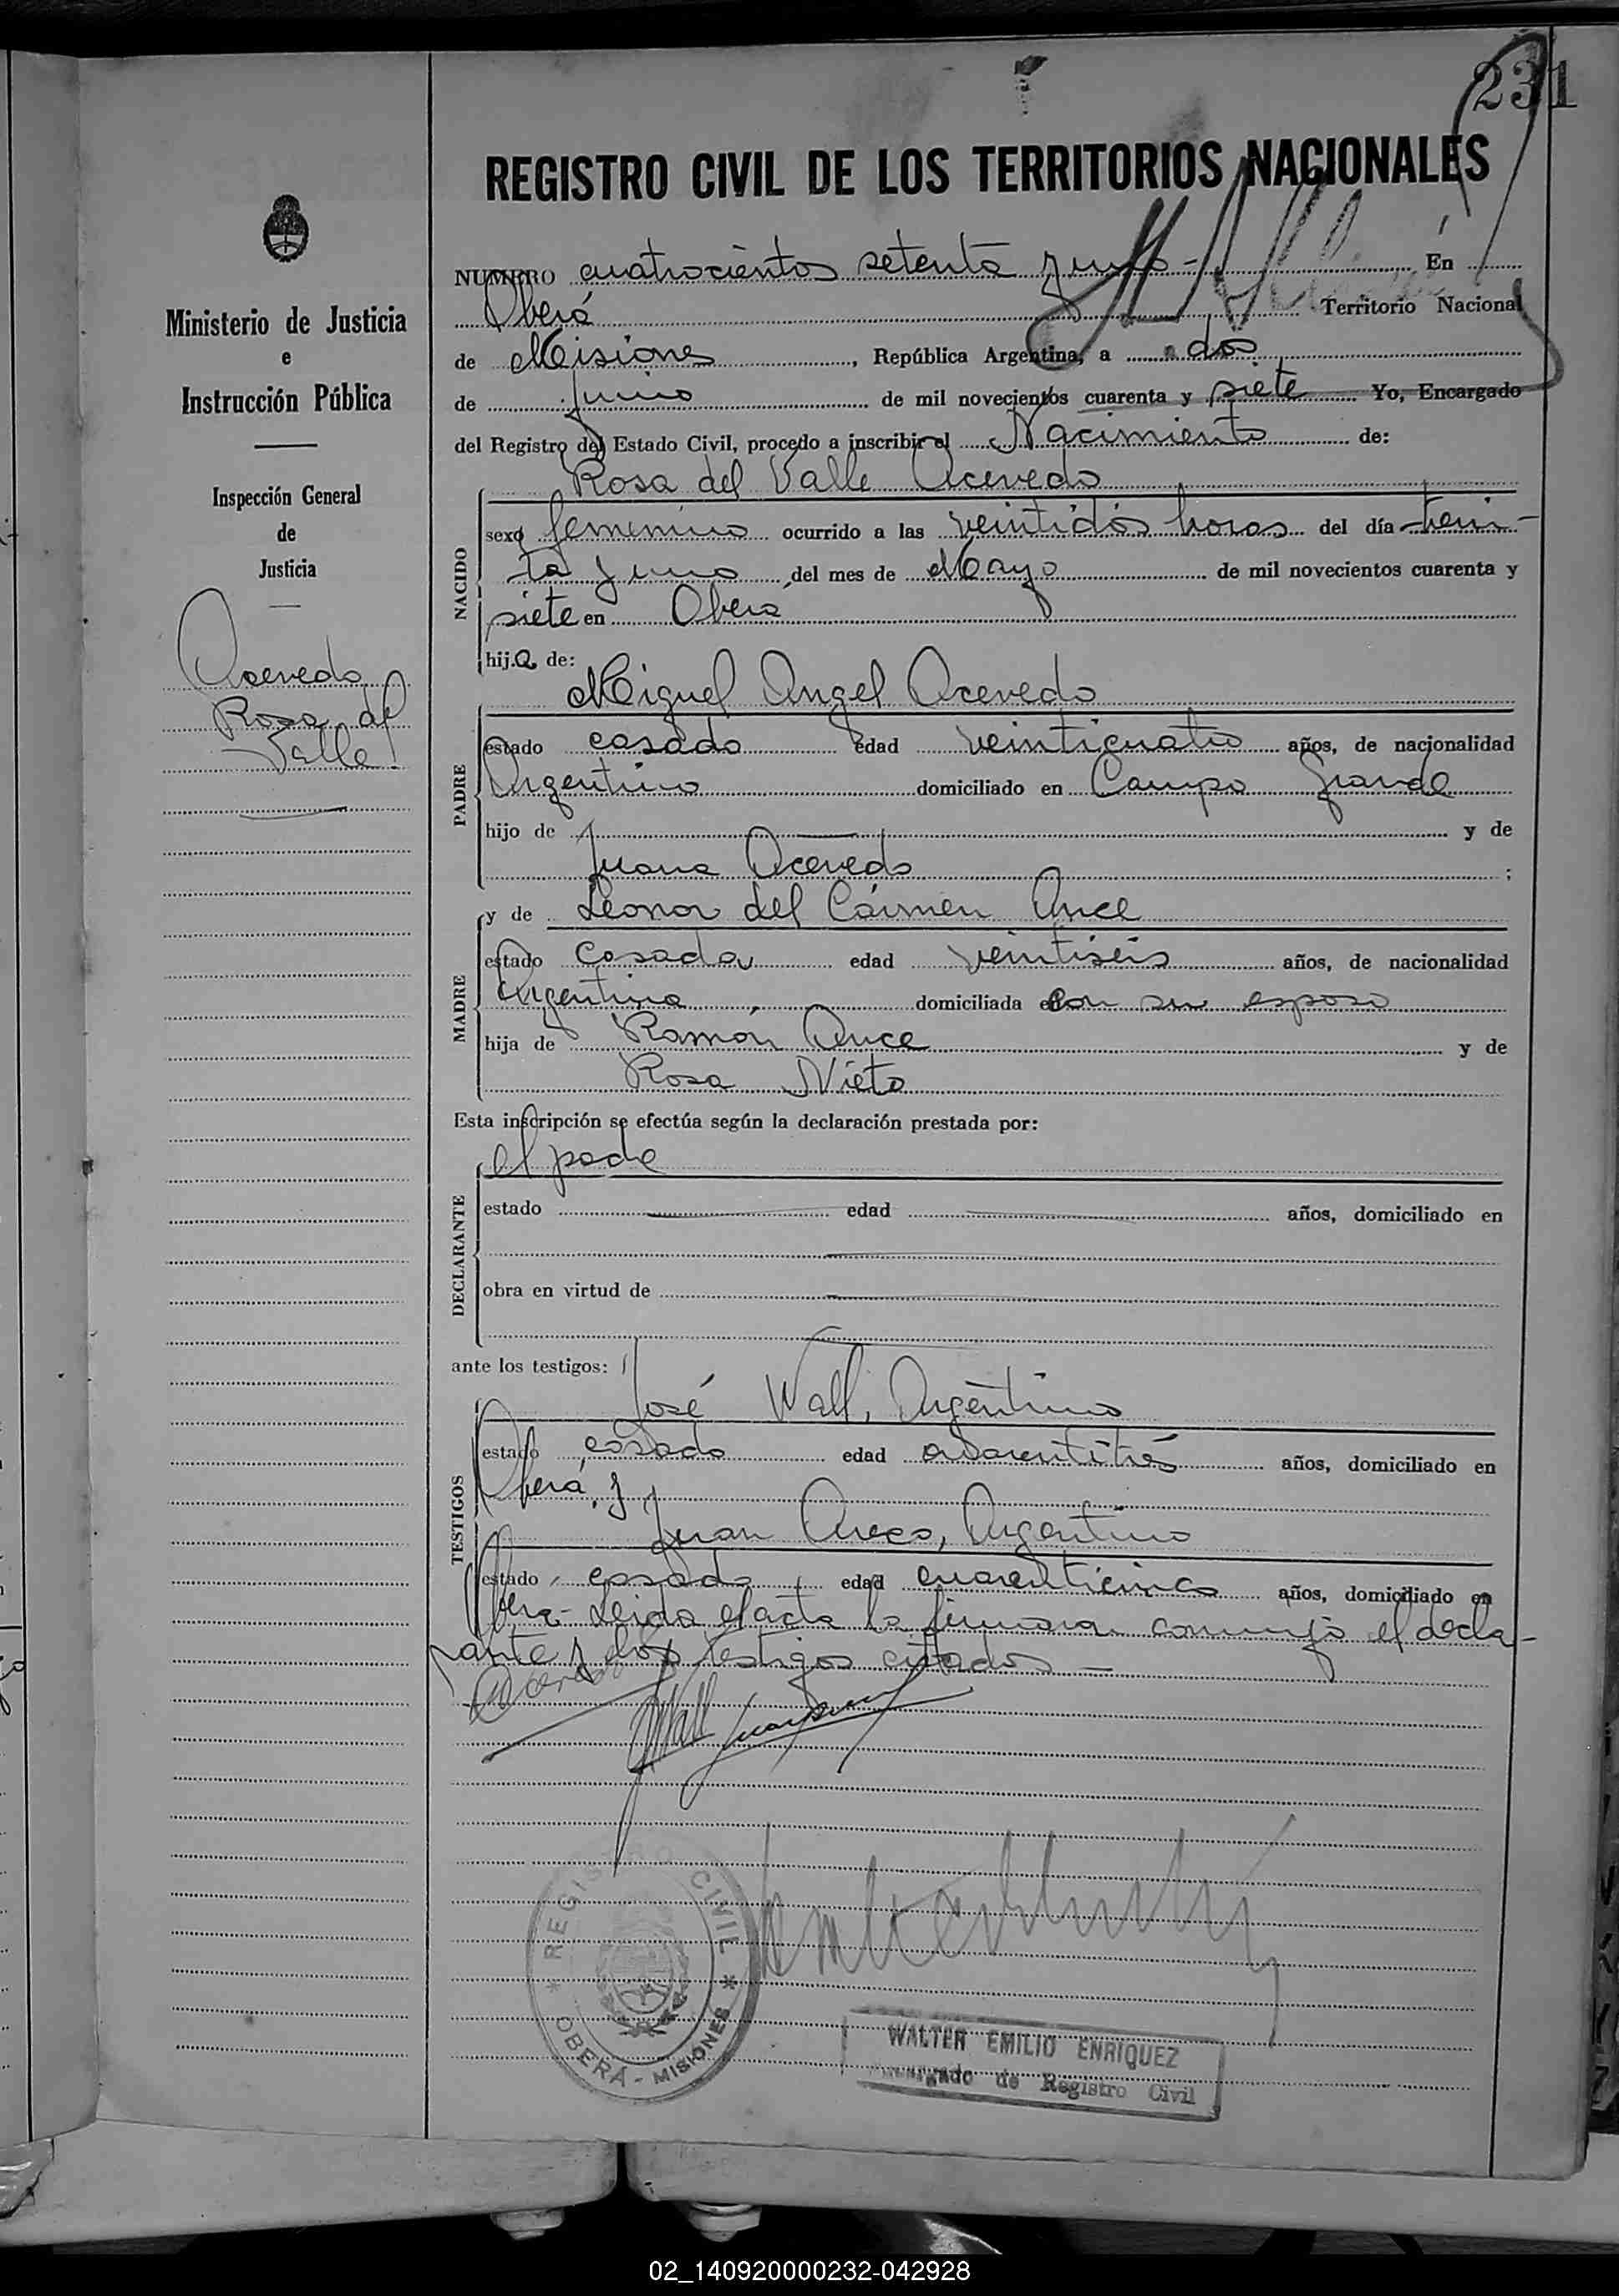 231
REGISTRO CIVIL DE LOS TERRITORIOS NACIONALES
NUMERO cuatrocientos setenta y uno - En
Oberá Territorio Nacional
de Misiones, República Argentina, a dos
de Junio de mil novecientos cuarenta y siete Yo, Encargado
del Registro del Estado Civil, procedo a inscribir el Nacimiento de:
Rosa del Valle Acevedo
NACIDO
sexo femenino ocurrido a las veintidós horas del día trein-
ta y uno del mes de Mayo de mil novecientos cuarenta y
siete en Oberá
hija de:
Miguel Angel Acevedo
PADRE
estado casado edad veinticuatro años, de nacionalidad
Argentino domiciliado en Campo Grande
hijo de y de
Juana Acevedo ;
y de Leonor del Cármen Ance
MADRE
estado casada edad veintiseis años, de nacionalidad
Argentina domiciliada con su esposo
hija de Ramón Ance y de
Rosa Nieto
Esta inscripción se efectúa según la declaración prestada por:
el padre
DECLARANTE
estado edad años, domiciliado en
obra en virtud de
ante los testigos:
José Wall, Argentino
TESTIGOS
estado casado edad cuarentitrés años, domiciliado en
Oberá, y
Juan , Argentino
estado casado edad cuarenticinco años, domiciliado en
Oberá - Leida el acta la firmaron conmigo el decla-
rante y los testigos citados -
Acevedo
Wall
REGISTRO CIVIL
* OBERÁ - MISIONES *
WALTER EMILIO ENRIQUEZ
Encargado de Registro Civil
Ministerio de Justicia
e
Instrucción Pública
Inspección General
de
Justicia
Acevedo
Rosa del
Valle
02_140920000232-042928